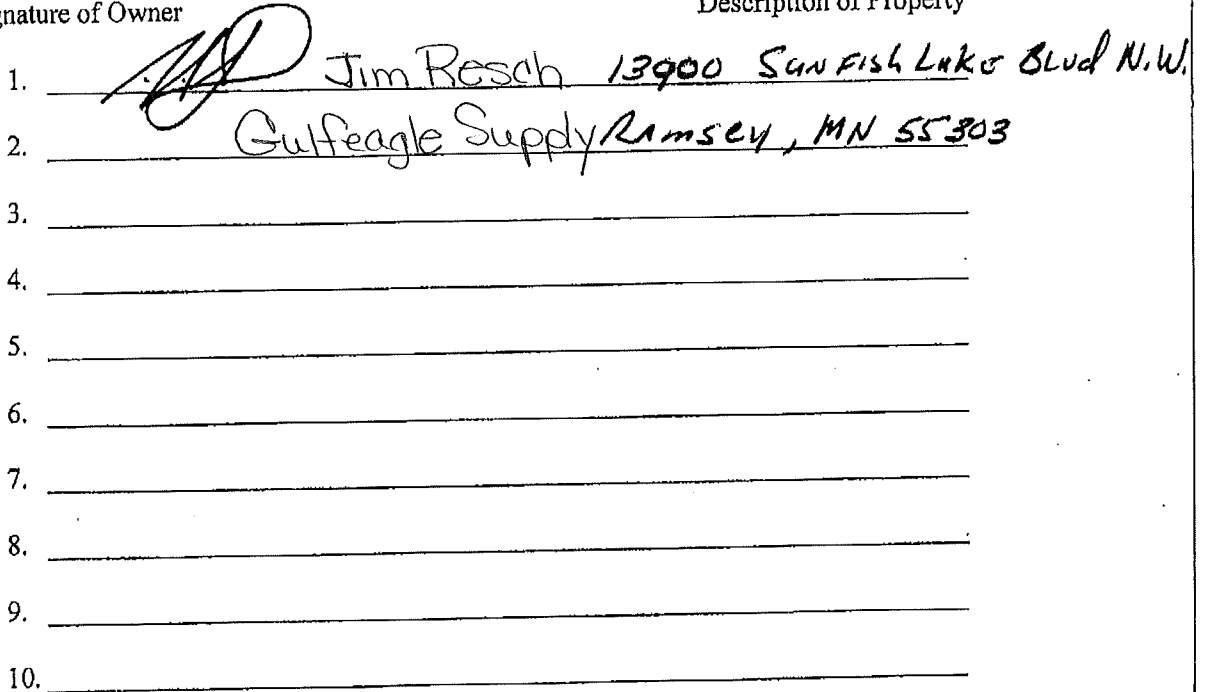 gnature of Owner Description of Property
1. Jim Resch 13900 Sunfish Lake Blvd N.W.
2. Gulfeagle Supply Ramsey, MN 55303
3.
4.
5.
6.
7.
8.
9.
10.